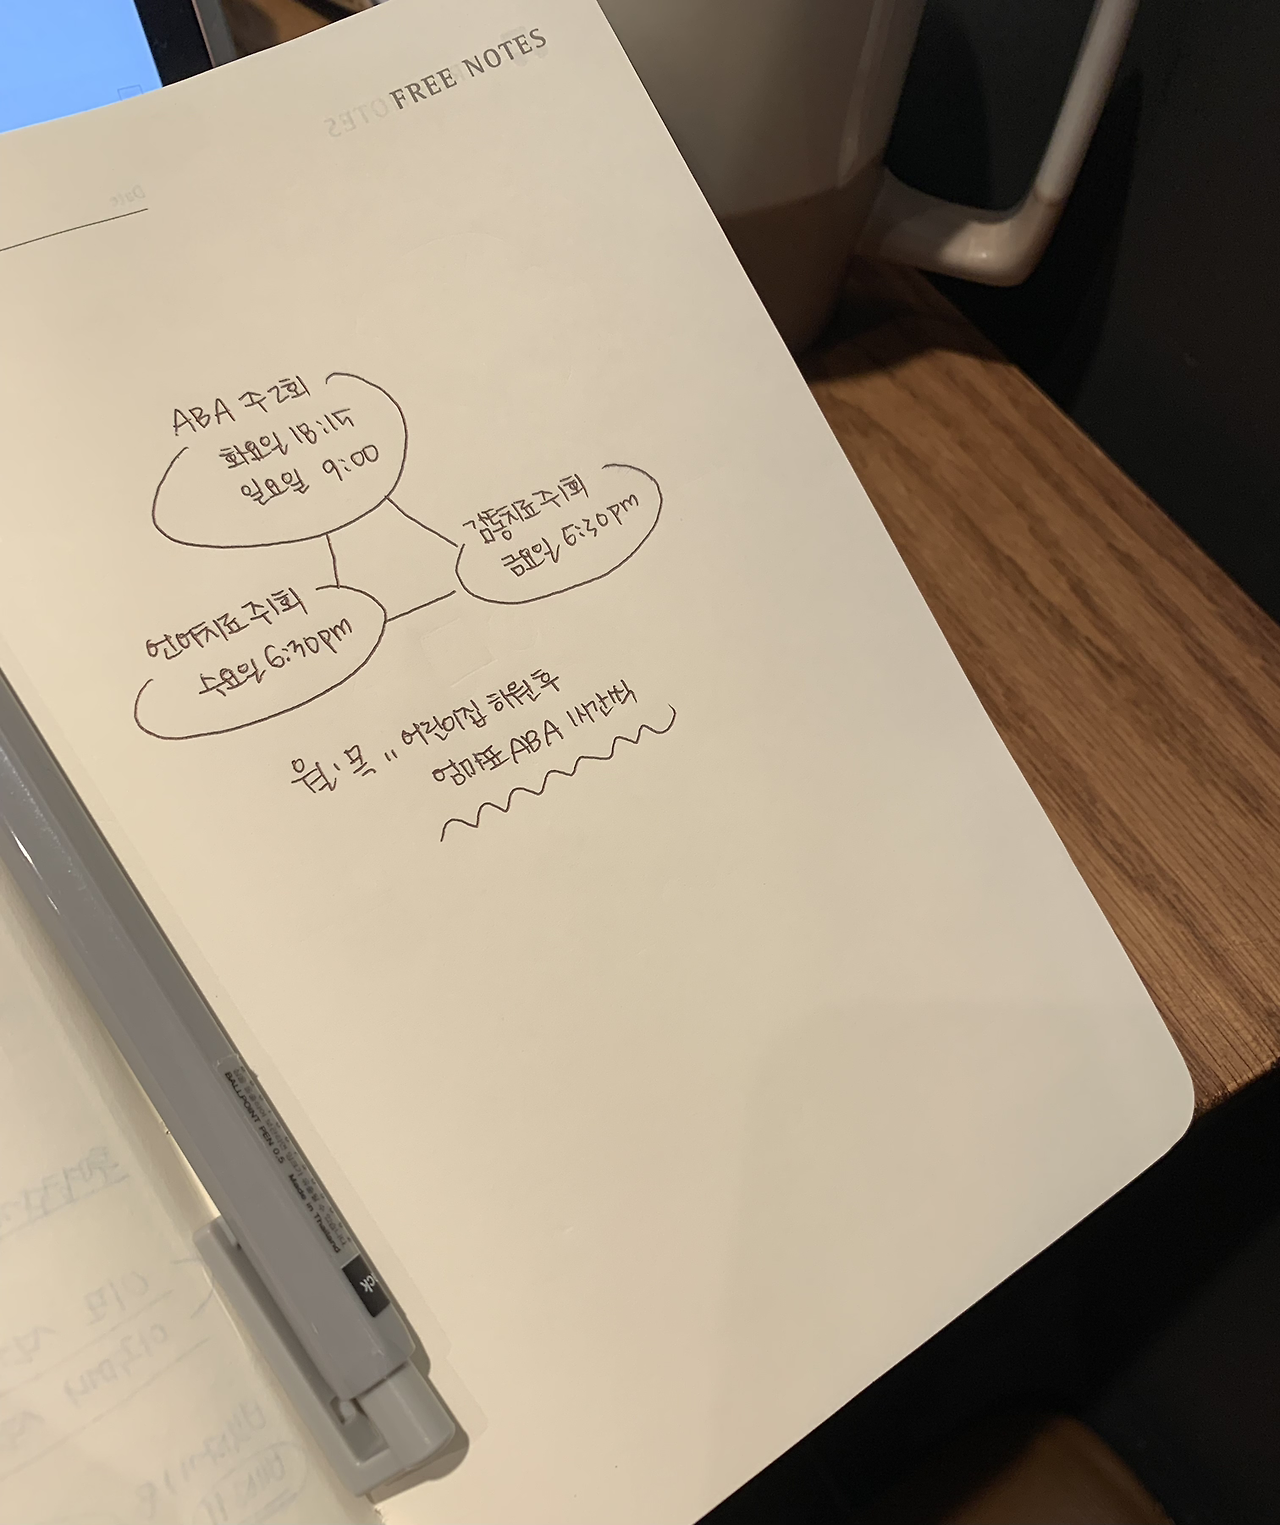 FREE NOTES
ABA 주2회
화요일 18:15
일요일 9:00
감통치료 주1회
금요일 5:30pm
언어치료 주1회
수요일 6:30pm
월·목 " 어린이집 하원 후
엄마표 ABA 1시간씩
BALLPOINT PEN 0.5 Made in Thailand